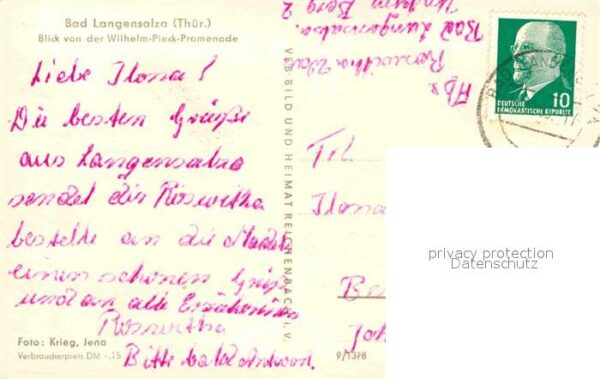 Bad Langensalza (Thür.)
Blick von der Wilhelm-Pieck-Promenade
Liebe Ilona!
Die besten Grüße
aus Langensalza
sendet dir Roswitha
bestelle an die Mädels
einen schönen Gruß
und an alle Erzieherinnen
Roswitha
Bitte bald Antwort.
Foto: Krieg, Jena
Verbraucherpreis DM -.15
VEB BILD UND HEIMAT REICHENBACH i. V.
9/1398
Roswitha
Bad Langensalza
Berg 2
10
DEUTSCHE
DEMOKRATISCHE REPUBLIK
Ilona
privacy protection
Datenschutz